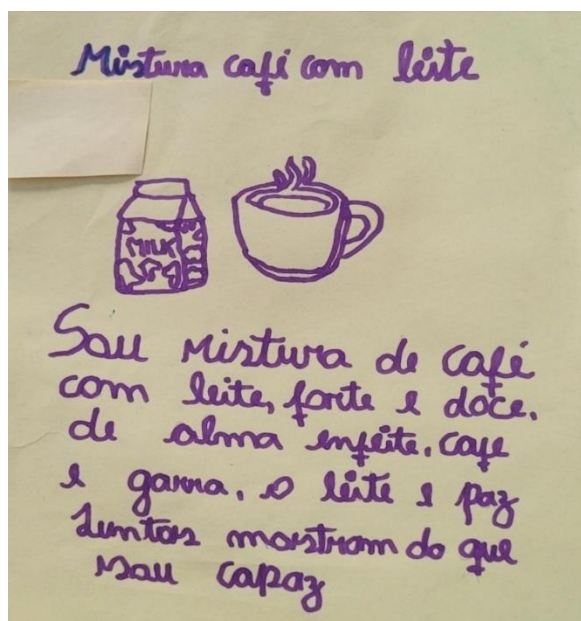 Mistura café com leite
MILK
Sou mistura de café
com leite, forte e doce.
de alma enfeite. cafe
e garra. o leite e paz
Juntos mostram do que
sou capaz